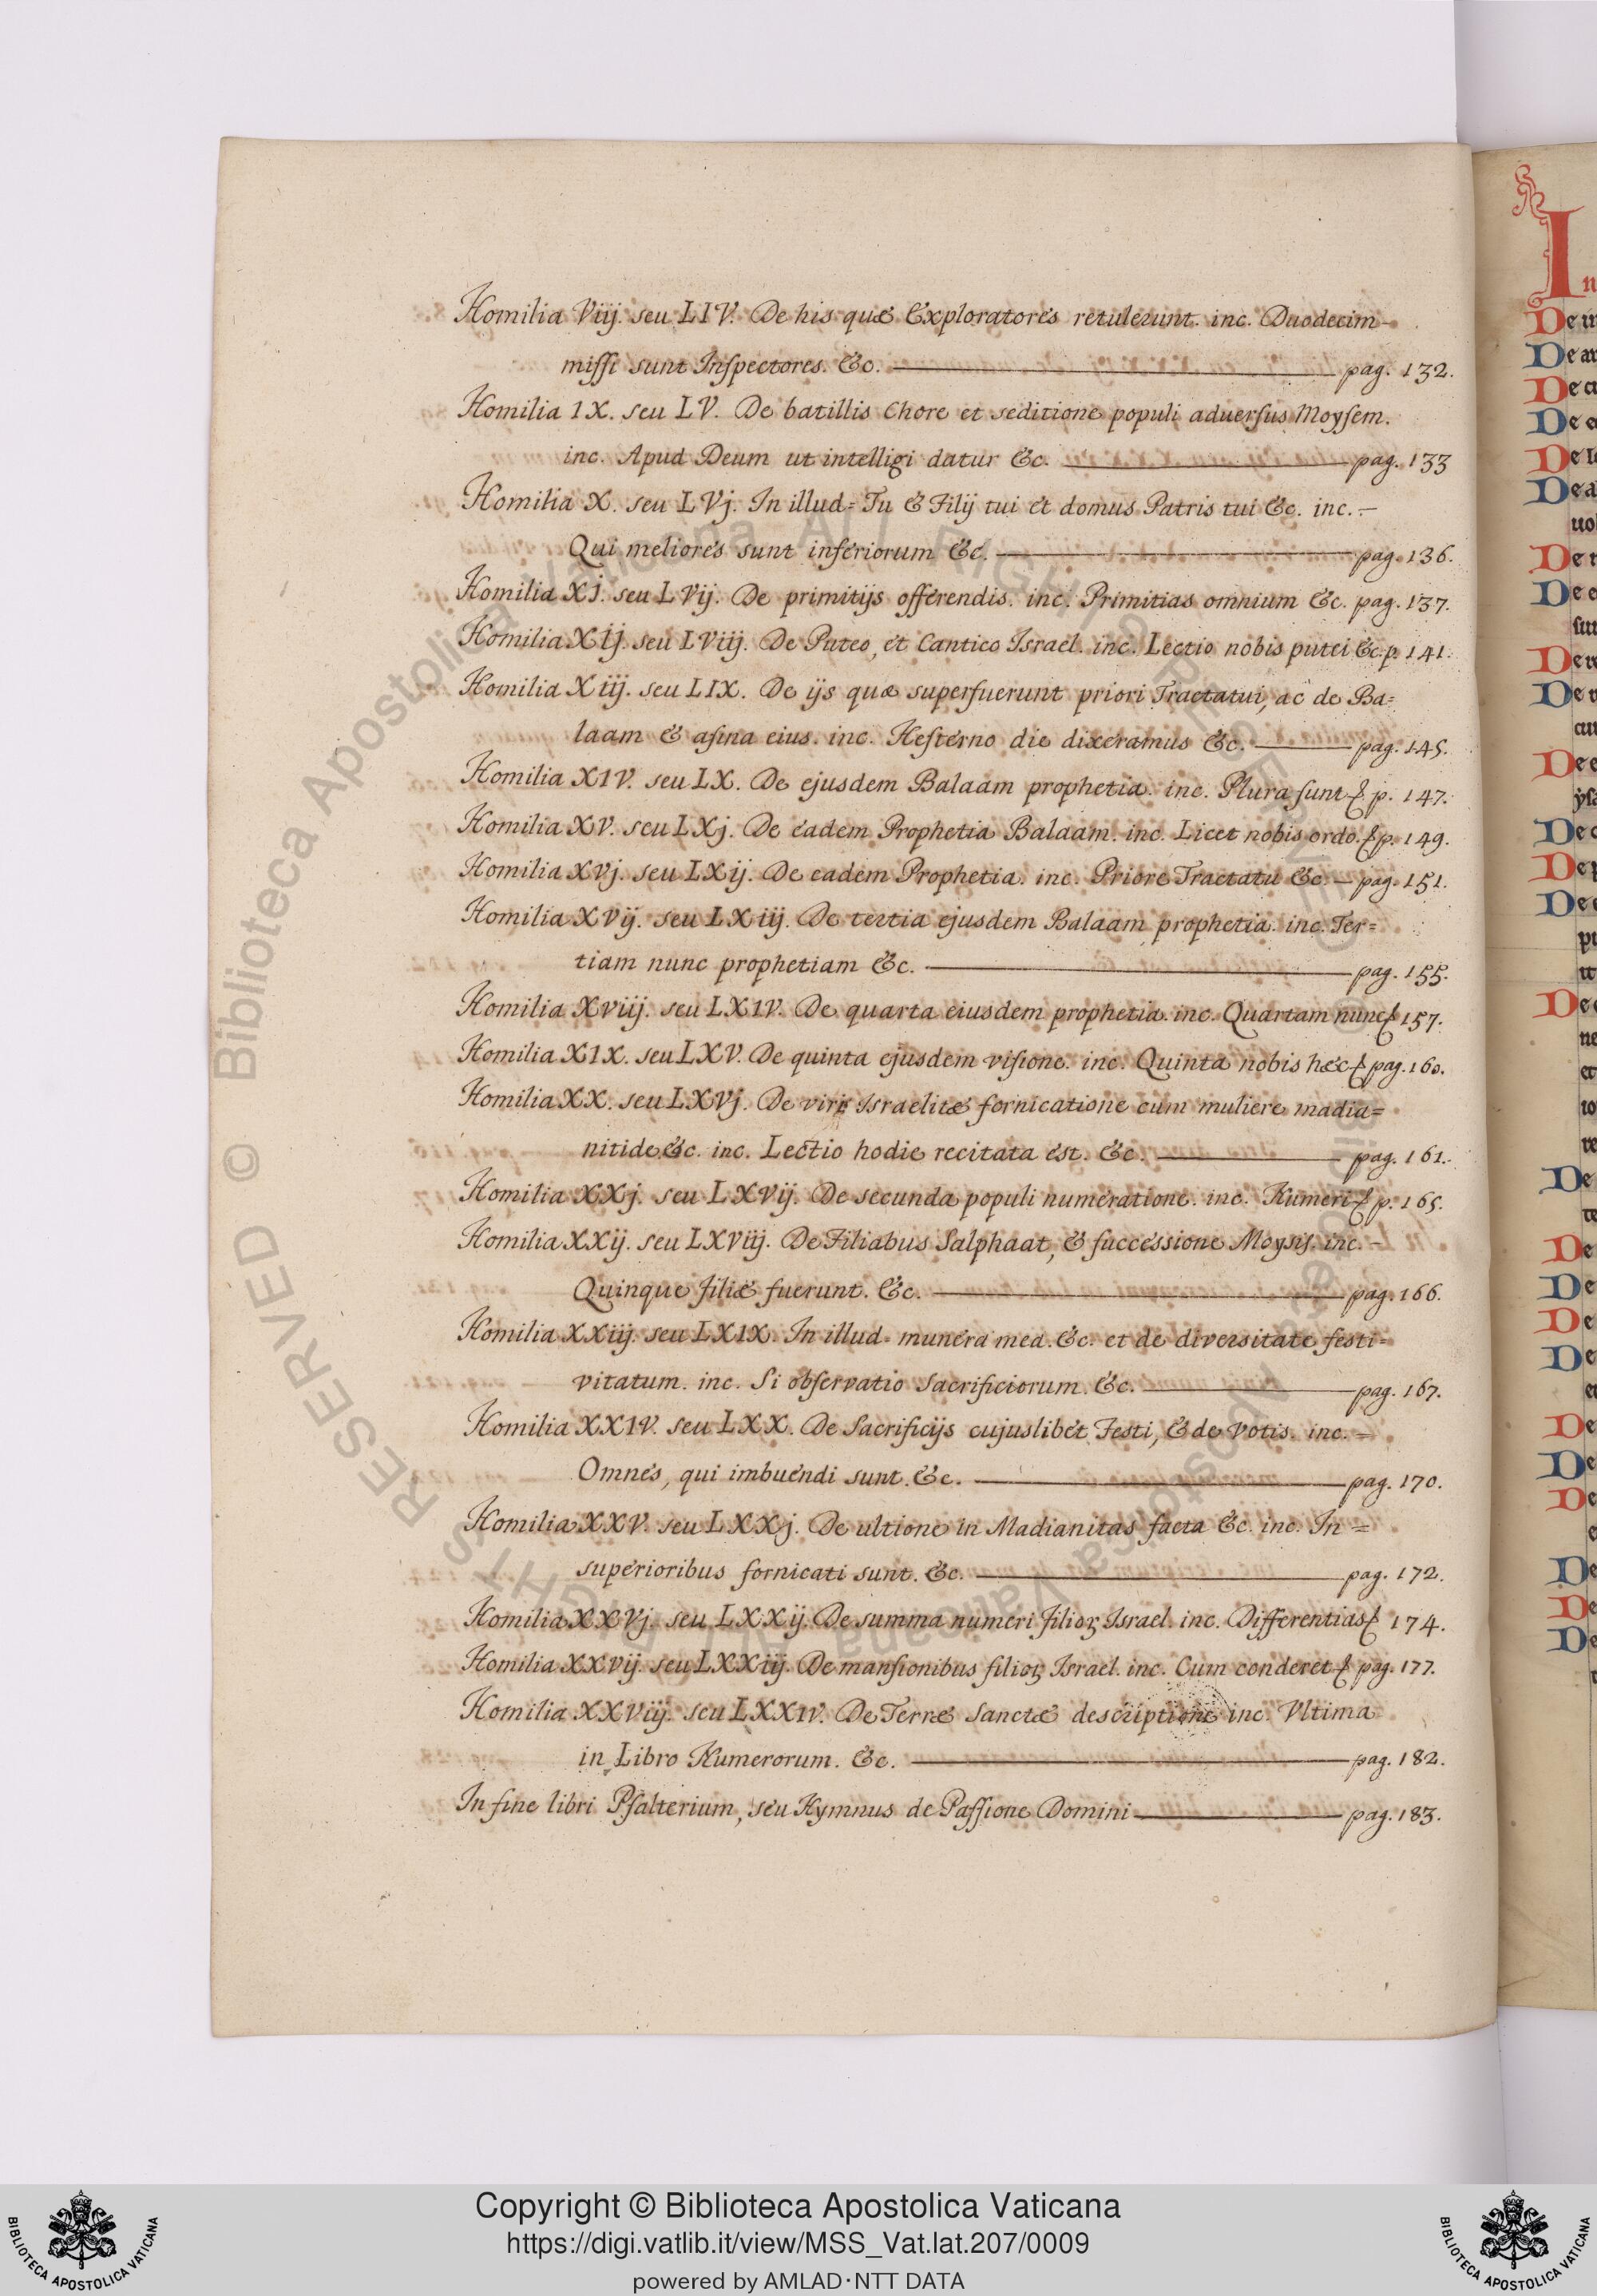 Homilia Viij. seu LIV. De his quæ Exploratores retulerunt. inc. Duodecim-
missi sunt Inspectores. &c. pag. 132.
Homilia IX. seu LV. De batillis Chore et seditione populi adversus Moysem.
inc. Apud Deum ut intelligi datur &c. pag. 133
Homilia X. seu LVj. In illud= Tu & Filij tui et domus Patris tui &c. inc.-
Qui meliores sunt inferiorum &c. pag. 136.
Homilia Xj. seu LVij. De primitijs offerendis. inc. Primitias omnium &c. pag. 137.
Homilia Xij. seu LViij. De Puteo, et Cantico Israel. inc. Lectio nobis putei &c. p. 141.
Homilia Xiij. seu LIX. De ijs quæ superfuerunt priori Tractatui, ac de Ba=
laam & asina eius. inc. Hesterno die dixeramus &c. pag. 145.
Homilia XIV. seu LX. De ejusdem Balaam prophetia. inc. Plura sunt & p. 147.
Homilia XV. seu LXj. De eadem Prophetia Balaam. inc. Licet nobis ordo. & p. 149.
Homilia XVj. seu LXij. De eadem Prophetia. inc. Priore Tractatu &c. - pag. 151.
Homilia XVij. seu LXiij. De tertia ejusdem Balaam prophetia. inc. Ter=
tiam nunc prophetiam &c. pag. 155.
Homilia XViij. seu LXIV. De quarta eiusdem prophetia. inc. Quartam nunc & 157.
Homilia XIX. seu LXV. De quinta ejusdem visione. inc. Quinta nobis hæc & pag. 160.
Homilia XX. seu LXVj. De viri Israelitæ fornicatione cum muliere madia=
nitide &c. inc. Lectio hodie recitata est. &c. pag. 161.
Homilia XXj. seu LXVij. De secunda populi numeratione. inc. Numeri & p. 165.
Homilia XXij. seu LXViij. De Filiabus Salphaat, & successione Moysis. inc. -
Quinque filiæ fuerunt. &c. pag. 166.
Homilia XXiij. seu LXIX. In illud= munera mea. &c. et de diversitate festi=
vitatum. inc. Si observatio sacrificiorum. &c. pag. 167.
Homilia XXIV. seu LXX. De Sacrificijs cujuslibet Festi, & de Votis. inc. -
Omnes, qui imbuendi sunt. &c. pag. 170.
Homilia XXV. seu LXXj. De ultione in Madianitas facta &c. inc. In =
superioribus fornicati sunt. &c. pag. 172.
Homilia XXVj. seu LXXij. De summa numeri filioꝝ Israel. inc. Differentias & 174.
Homilia XXVij. seu LXXiij. De mansionibus filioꝝ Israel. inc. Cum conderet & pag. 177.
Homilia XXViij. seu LXXIV. De Terræ Sanctæ descriptione inc. Vltima
in Libro Numerorum. &c. pag. 182.
In fine libri Psalterium, seu Hymnus de Passione Domini pag. 183.
Copyright © Biblioteca Apostolica Vaticana
https://digi.vatlib.it/view/MSS_Vat.lat.207/0009
powered by AMLAD·NTT DATA
BIBLIOTECA APOSTOLICA VATICANA
BIBLIOTECA APOSTOLICA VATICANA